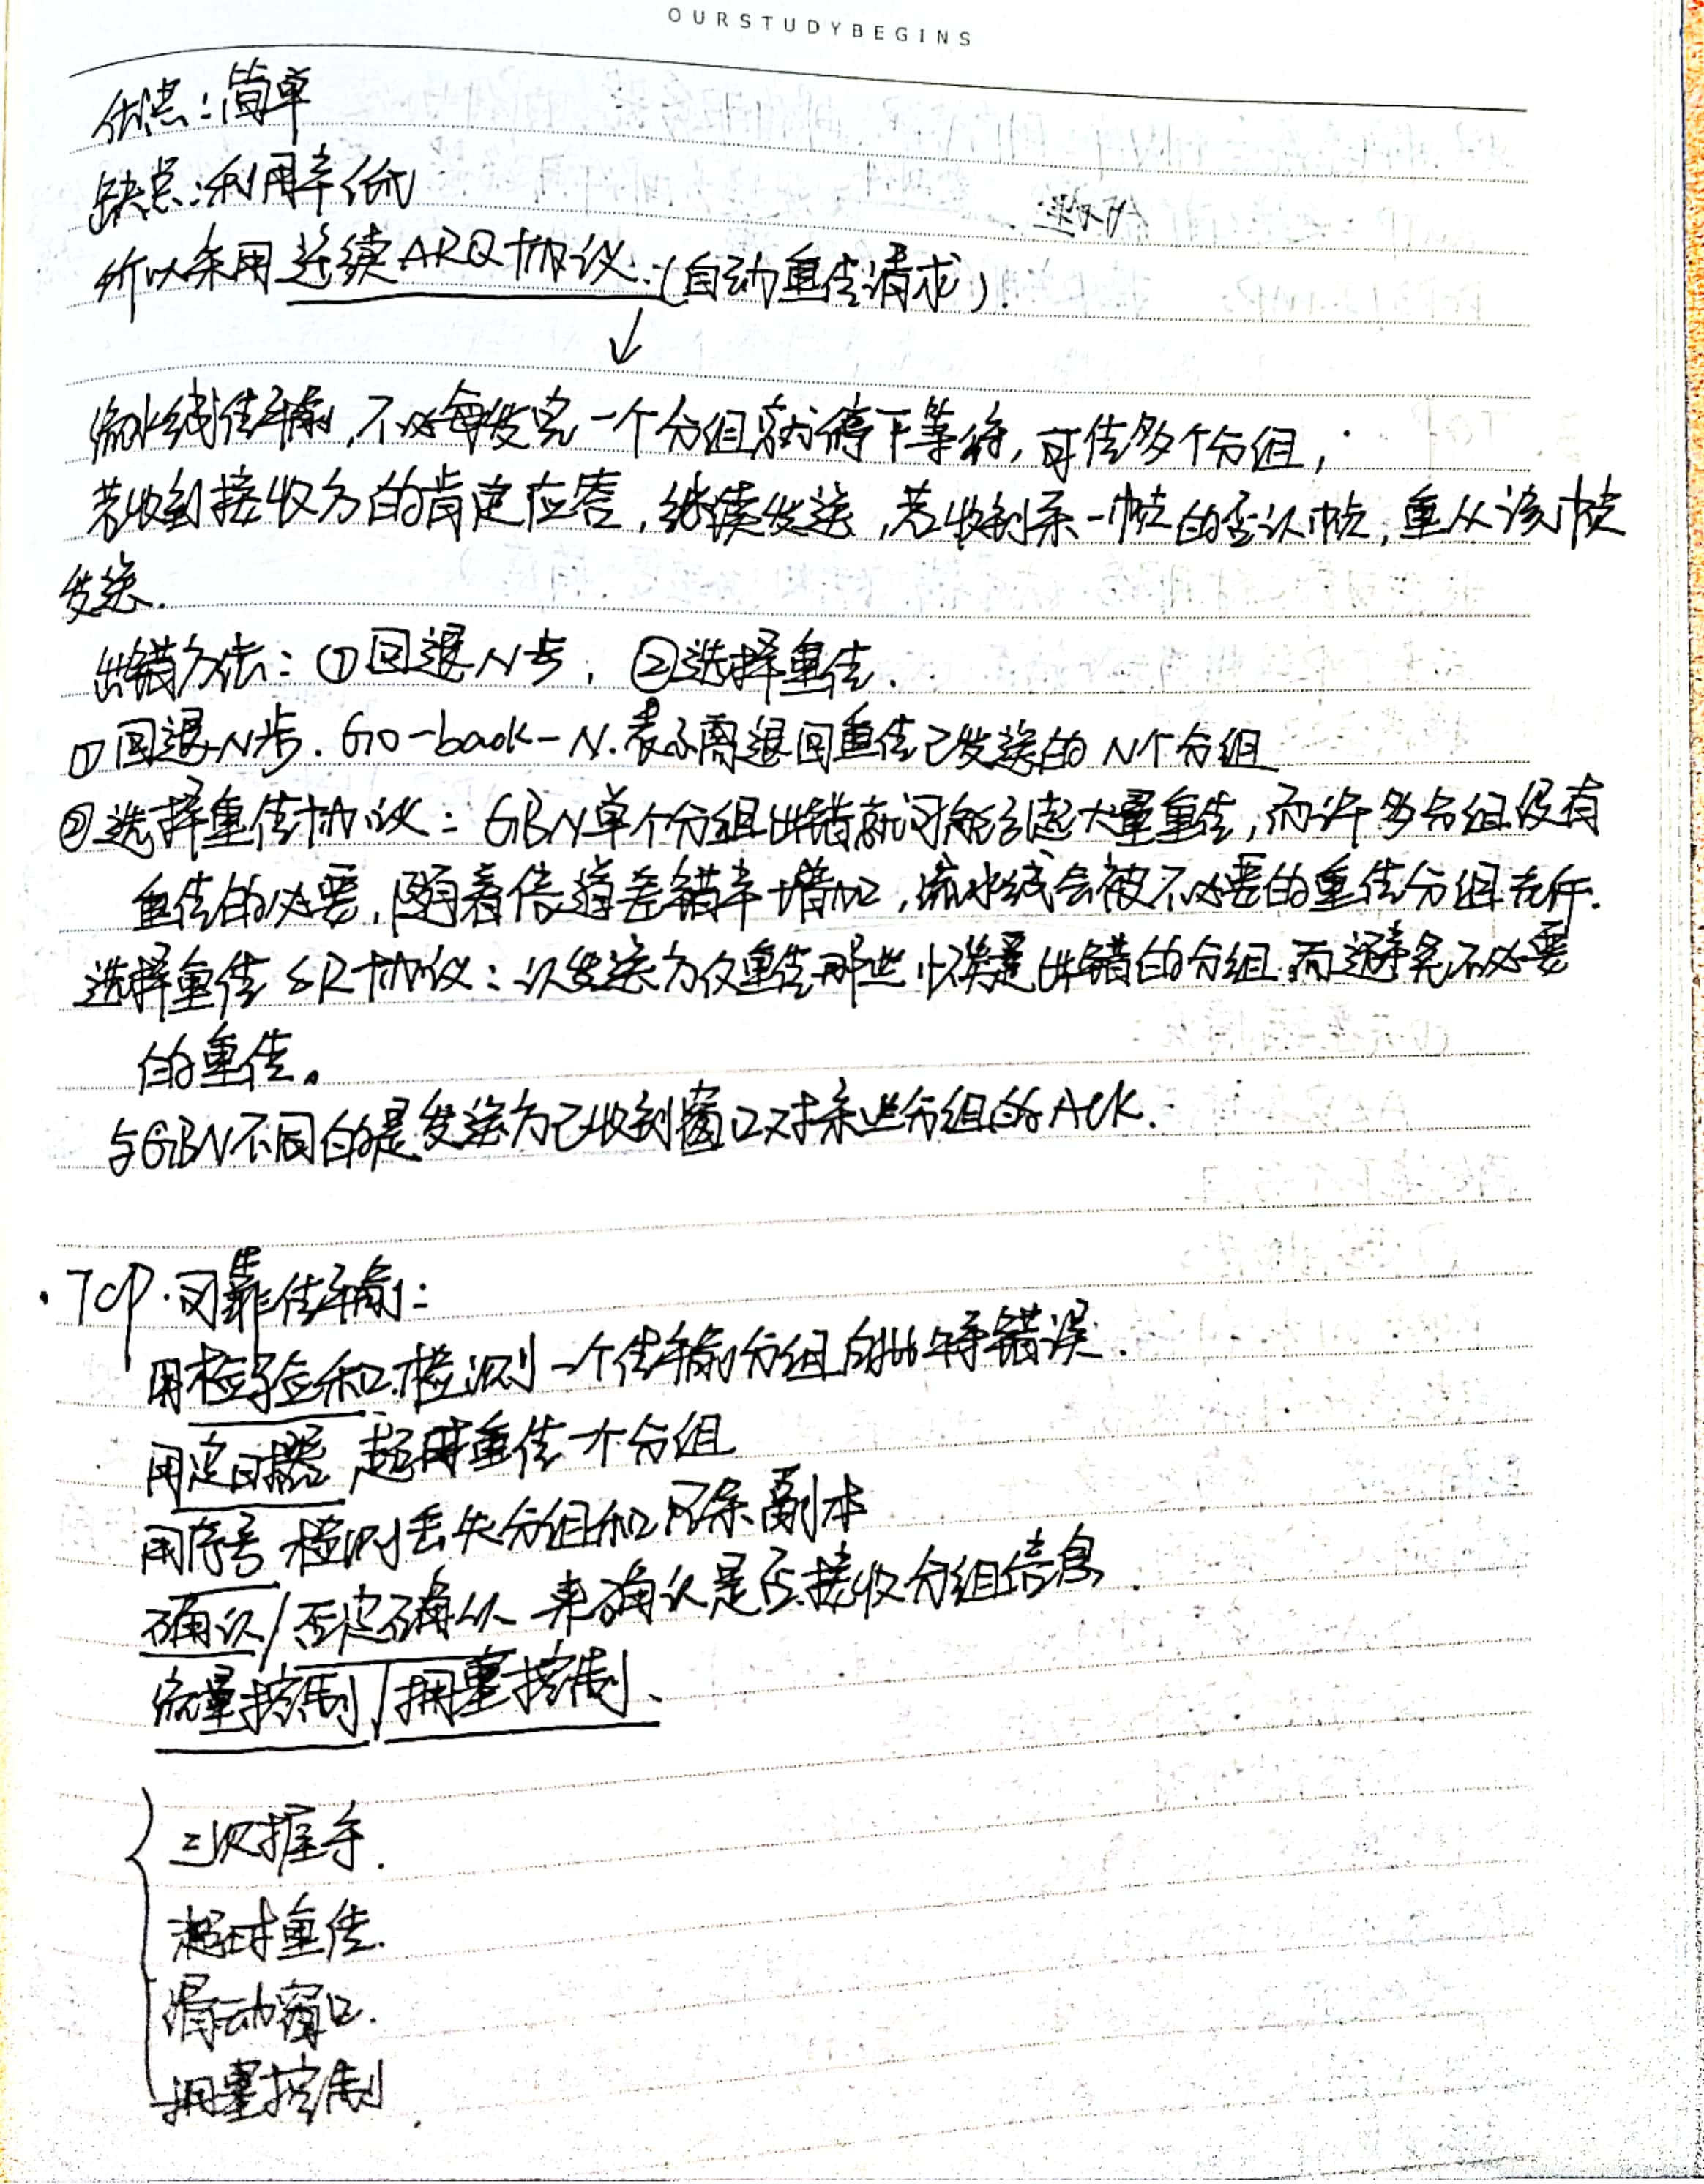 OURSTUDYBEGINS
优点：简单
缺点：利用率低
所以采用连续ARQ协议：（自动重传请求）.
↓
流水线传输，不必每发完一个分组就停下等待，可传多个分组，
若收到接收方的肯定应答，继续发送，若收到某一帧的否认帧，重从该帧
发送.
出错方法：①回退N步，②选择重传.
①回退N步. Go-back-N.表示需退回重传已发送的N个分组
②选择重传协议：GBN单个分组出错就可能引起大量重传，而许多分组没有
重传的必要，随着信道差错率增加，流水线会被不必要的重传分组充斥.
选择重传SR协议：以发送方仅重传那些怀疑是出错的分组而避免不必要
的重传。
与GBN不同的是发送方已收到窗口对某些分组的ACK.
·TCP·可靠传输：
用检验和.检测一个传输分组的比特错误.
用定时器 超时重传一个分组
用序号 检测丢失分组和冗余副本
确认/否定确认 来确认是否接收分组信息.
流量控制/拥塞控制、
三次握手.
超时重传.
滑动窗口.
拥塞控制.